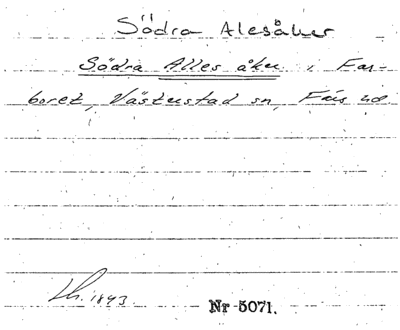 Södra Alesåker
Södra Alles åker, i Far-
boret, Västerstad sn, Färs hd
Lh. 1893.
Nr 5071.